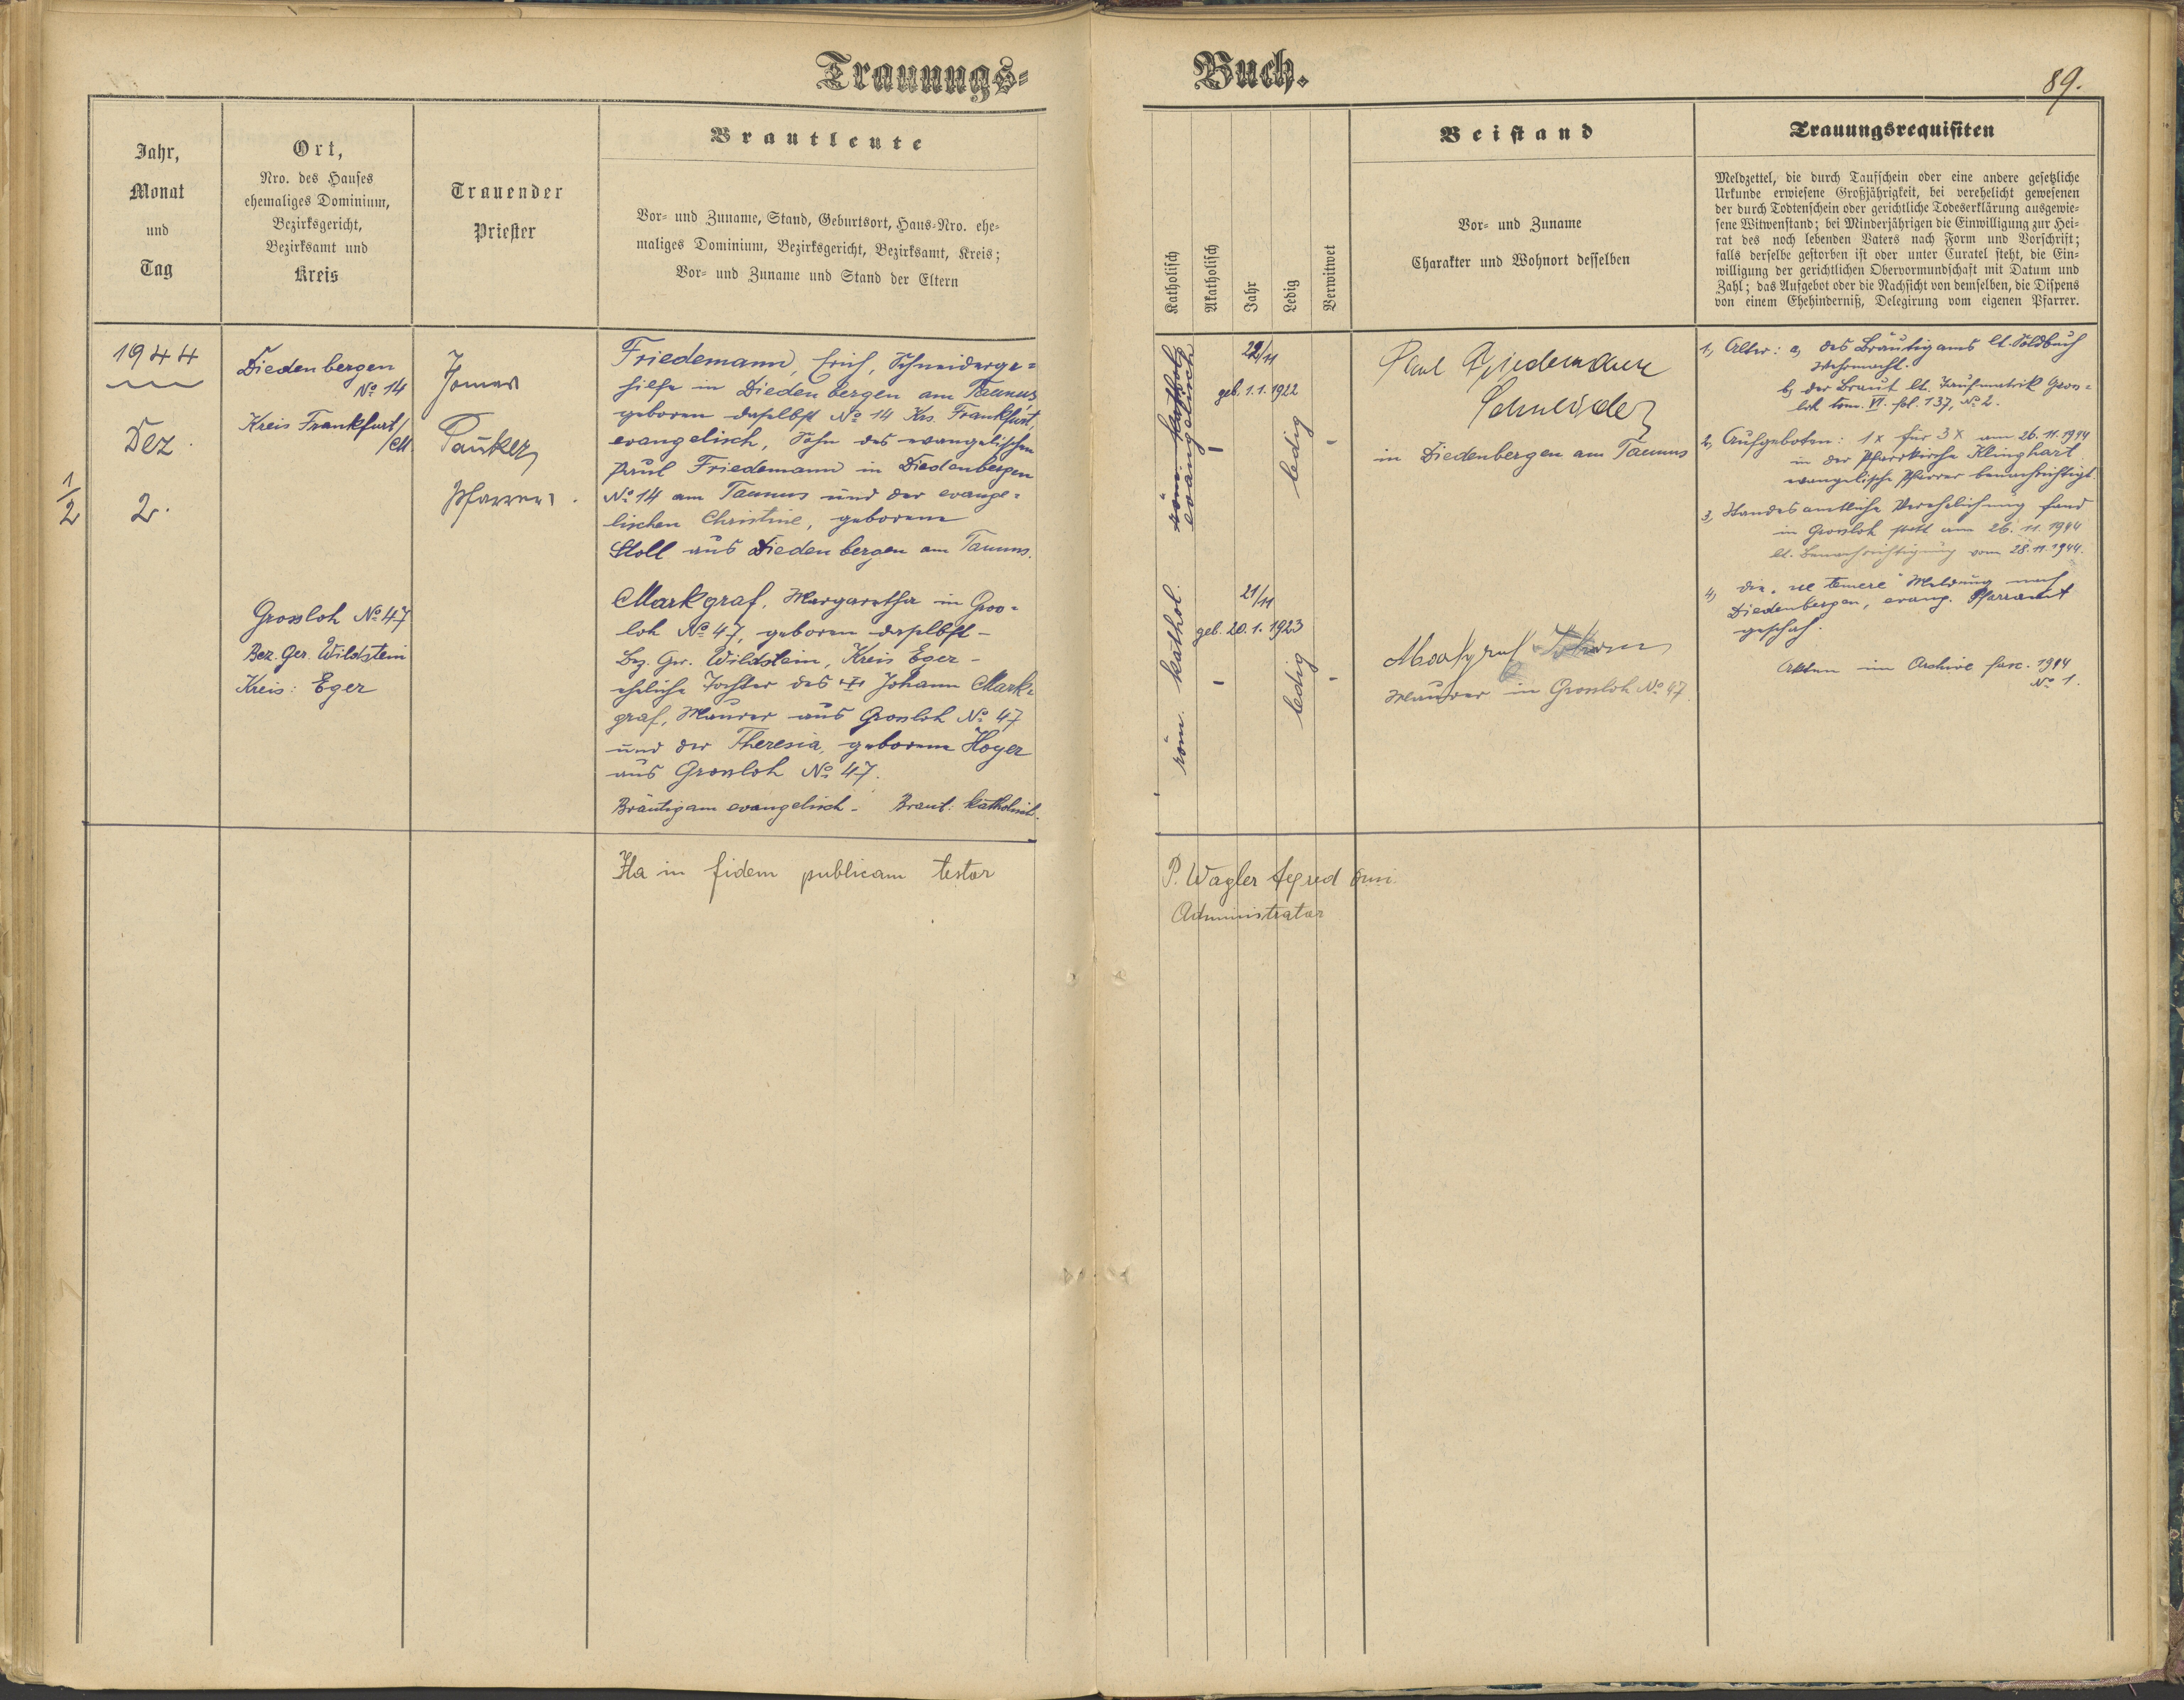 Trauungs=
Buch.
89.
Jahr,
Monat
und
Tag
Ort,
Nro. des Hauses
ehemaliges Dominium,
Bezirksgericht,
Bezirksamt und
Kreis
Trauender
Priester
Brautleute
Vor- und Zuname, Stand, Geburtsort, Haus-Nro. ehe-
maliges Dominium, Bezirksgericht, Bezirksamt, Kreis;
Vor- und Zuname und Stand der Eltern
Katholisch
Akatholisch
Jahr
Ledig
Verwitwet
Beistand
Vor- und Zuname
Charakter und Wohnort desselben
Trauungsrequisiten
Meldzettel, die durch Taufschein oder eine andere gesetzliche
Urkunde erwiesene Großjährigkeit, bei verehelicht gewesenen
der durch Todtenschein oder gerichtliche Todeserklärung ausgewie-
sene Witwenstand; bei Minderjährigen die Einwilligung zur Hei-
rat des noch lebenden Vaters nach Form und Vorschrift;
falls derselbe gestorben ist oder unter Curatel steht, die Ein-
willigung der gerichtlichen Obervormundschaft mit Datum und
Zahl; das Aufgebot oder die Nachsicht von demselben, die Dispens
von einem Ehehinderniß, Delegirung vom eigenen Pfarrer.
1944
Dez.
1/2
2.
Diedenbergen
No 14
Kreis Frankfurt/
/M
Grossloh No 47
Bez. Ger. Wildstein
Kreis: Eger
Pauker
Pfarrer
Friedemann, Erich, Schneiderge=
hilfe in Diedenbergen am Taunus
geboren daselbst No 14 Krs. Frankfurt,
evangelisch, Sohn des evangelischen
Paul Friedemann in Diedenbergen
No 14 am Taunus und der evange=
lischen Christine, geborene
Stoll aus Diedenbergen am Taunus.
Markgraf, Margaretha in Gros=
loh No 47, geboren daselbst -
Bez. Ger. Wildstein, Kreis Eger -
eheliche Tochter des Johann Mark=
graf, Maurer aus Grossloh No 47
und der Theresia, geborene Hoyer
aus Grossloh No 47.
Bräutigam evangelisch - Braut: katholisch.
röm. kathol.
evangelisch
-
22/11
geb. 1.1.1922
ledig
-
röm. kathol.
-
21/11
geb. 20.1.1923
ledig
-
Paul Friedemann
Schneider
in Diedenbergen am Taunus
Markgraf Johann
Maurer in Grossloh No 47.
1, Alter: a, des Bräutigams lt. Soldbuch
Wehrmacht.
b, der Braut lt. Taufmatrik Gross=
loh tom. VI. fol. 137, No 2.
2, Aufgeboten: 1x für 3x am 26.11.1944
in der Pfarrkirche Klinghart
evangelische Pfarrer benachrichtigt.
3, Standesamtliche Verehelichung fand
in Grossloh statt am 26.11.1944
lt. Benachrichtigung vom 28.11.1944.
4, die "ne temere" Meldung nach
Diedenbergen, evang. Pfarramt
geschah.
Akten im Archive fasc. 1944
No 1.
Ita in fidem publicam testor
P. Wagler
Administrator